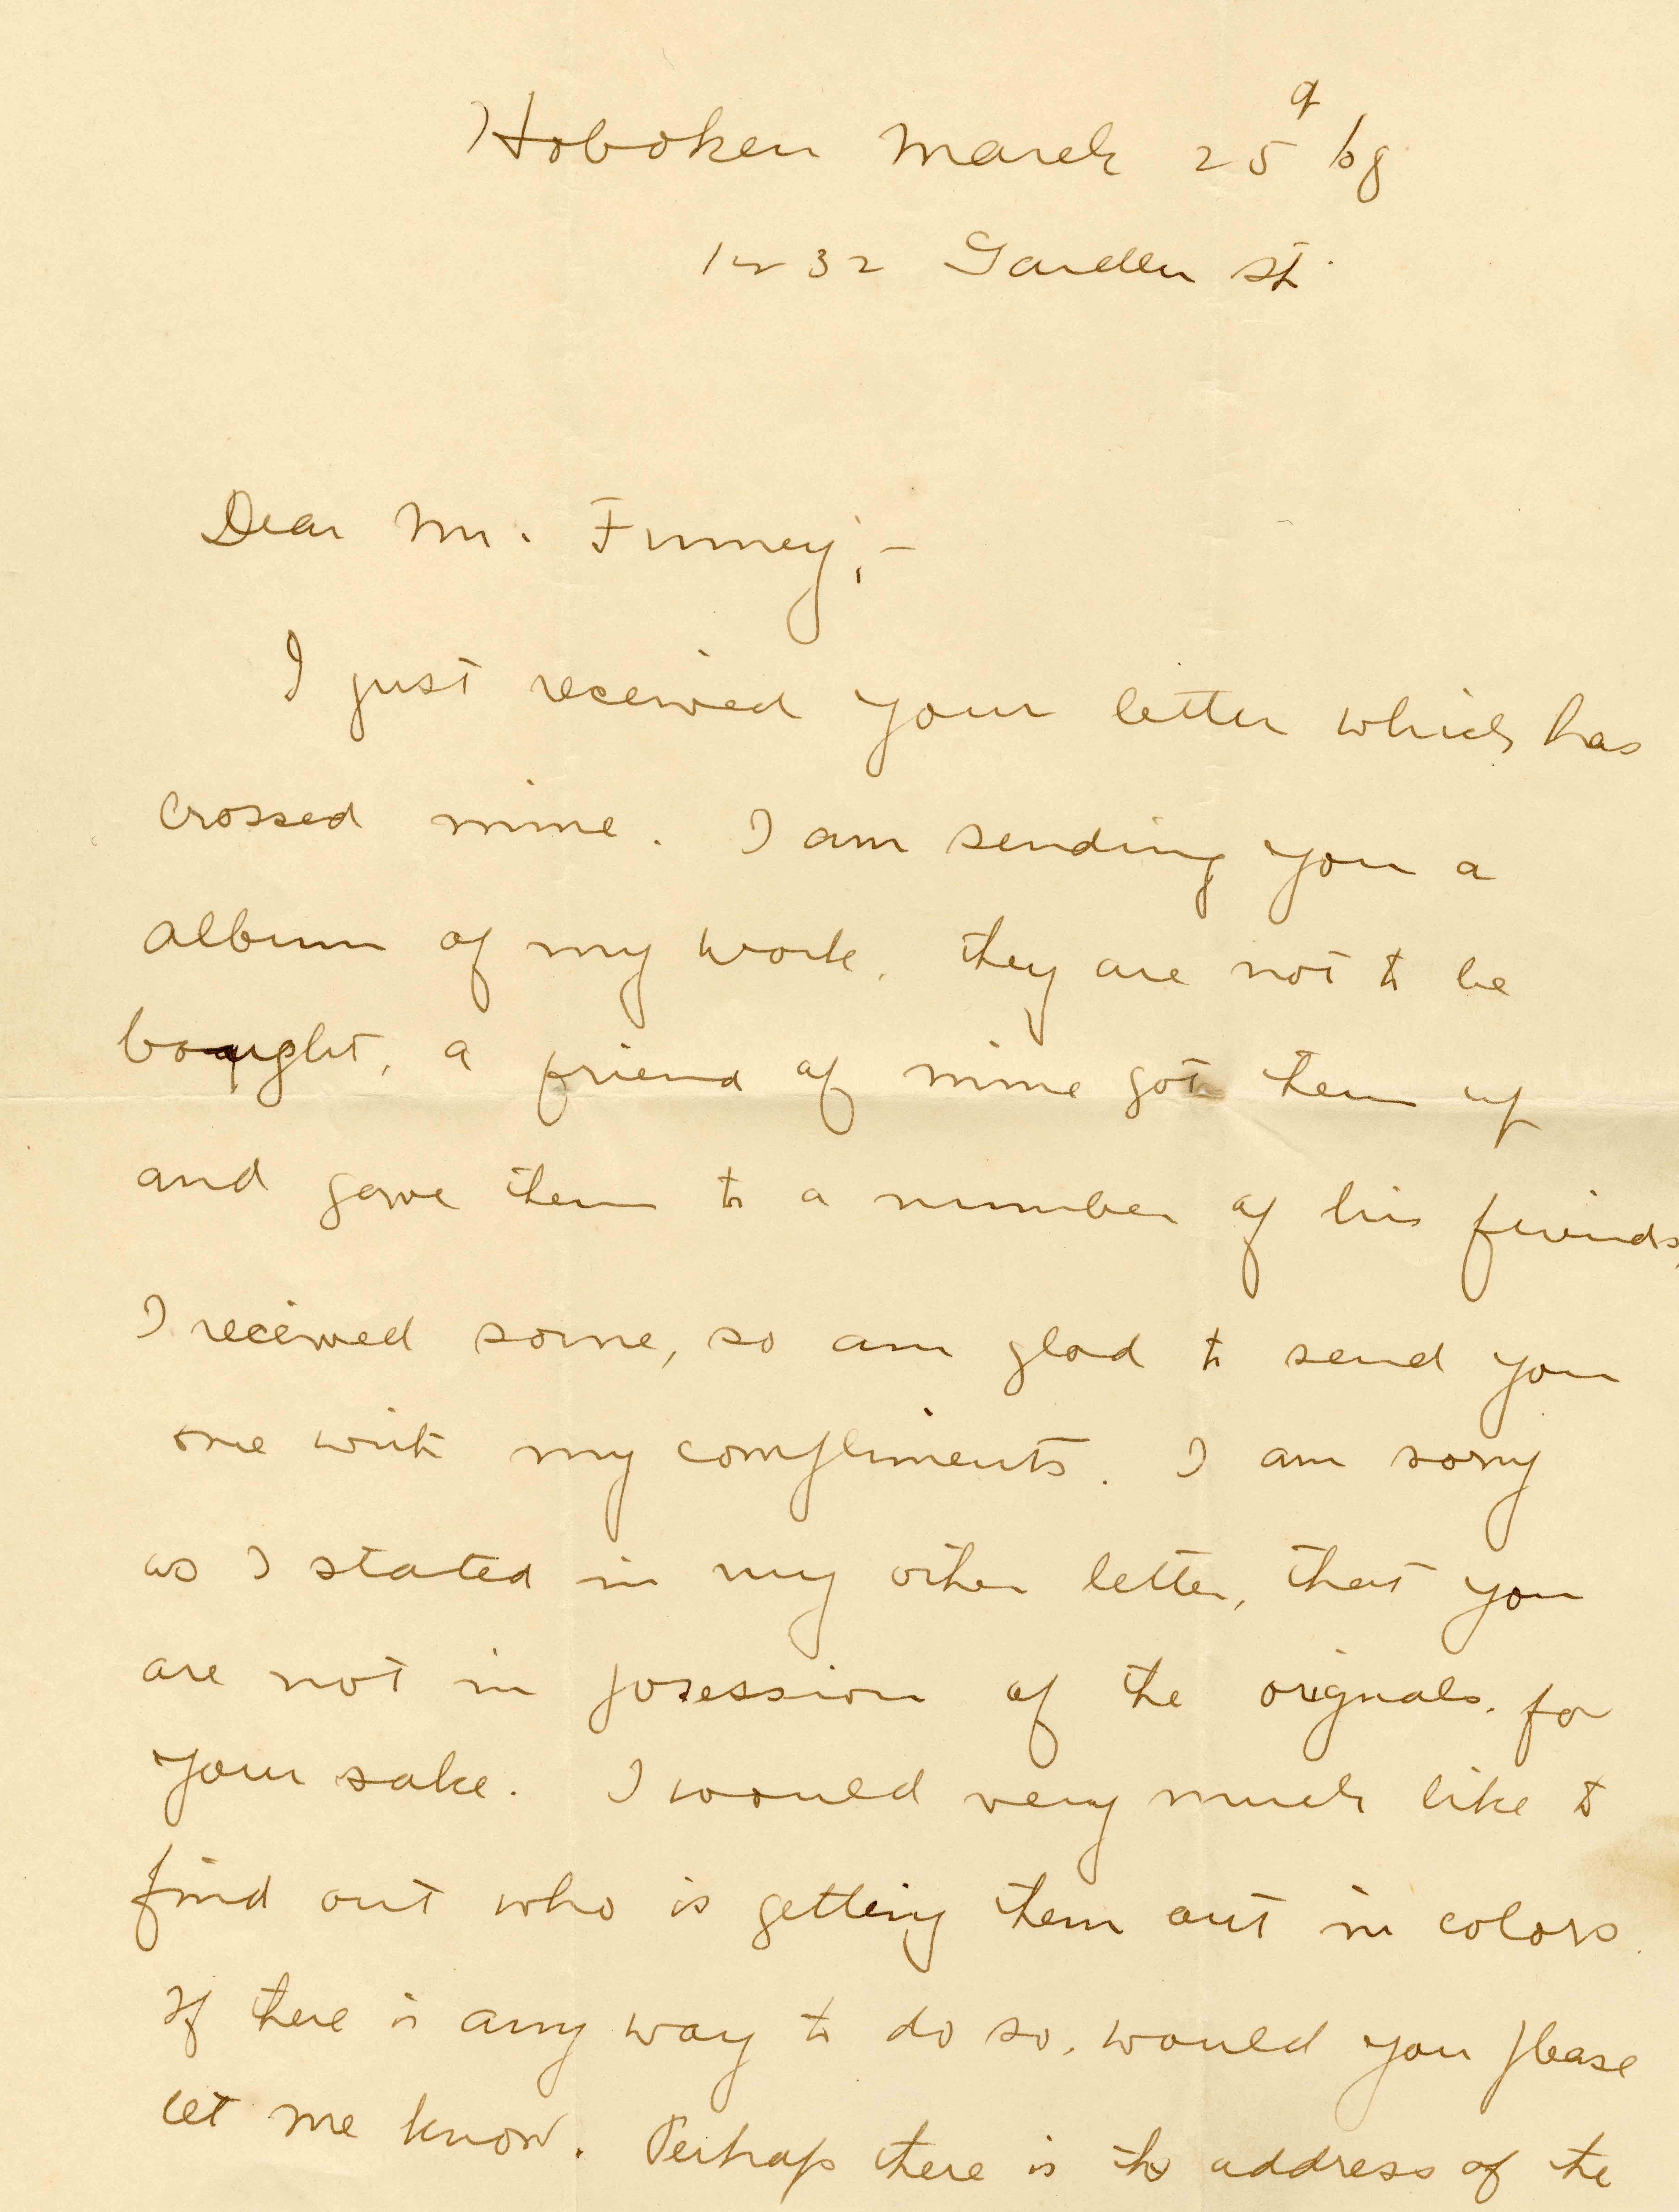 Hoboken March 25 9/08
1232 Garden St.
Dear Mr. Finney;-
I just received your letter which has
crossed mine. I am sending you a
album of my work. they are not to be
bought, a friend of mine got them up
and gave them to a number of his friends,
I received some, so am glad to send you
one with my compliments. I am sorry
as I stated in my other letter, that you
are not in posession of the orignals. for
your sake. I would very much like to
find out who is getting them out in colors.
If there is any way to do so, would you please
let me know. Perhaps there is the address of the